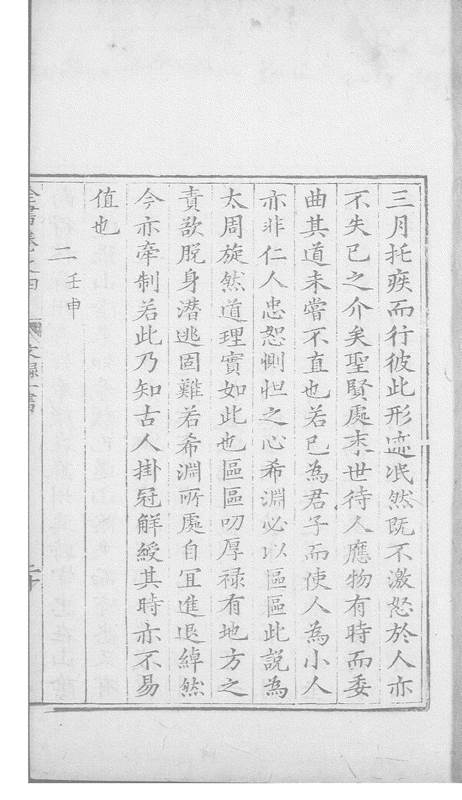 三月托疾而行彼此形迹泯然既不激怒於人亦
不失已之介矣聖賢處末世待人應物有時而委
曲其道未嘗不直也若已為君子而使人為小人
亦非仁人忠恕惻怛之心希淵必以區區此説為
太周旋然道理實如此也區區叨厚禄有地方之
責欲脱身潜逃固難若希淵所處自宜進退綽然
今亦牽制若此乃知古人掛冠觧綬其時亦不易
值也
二壬申